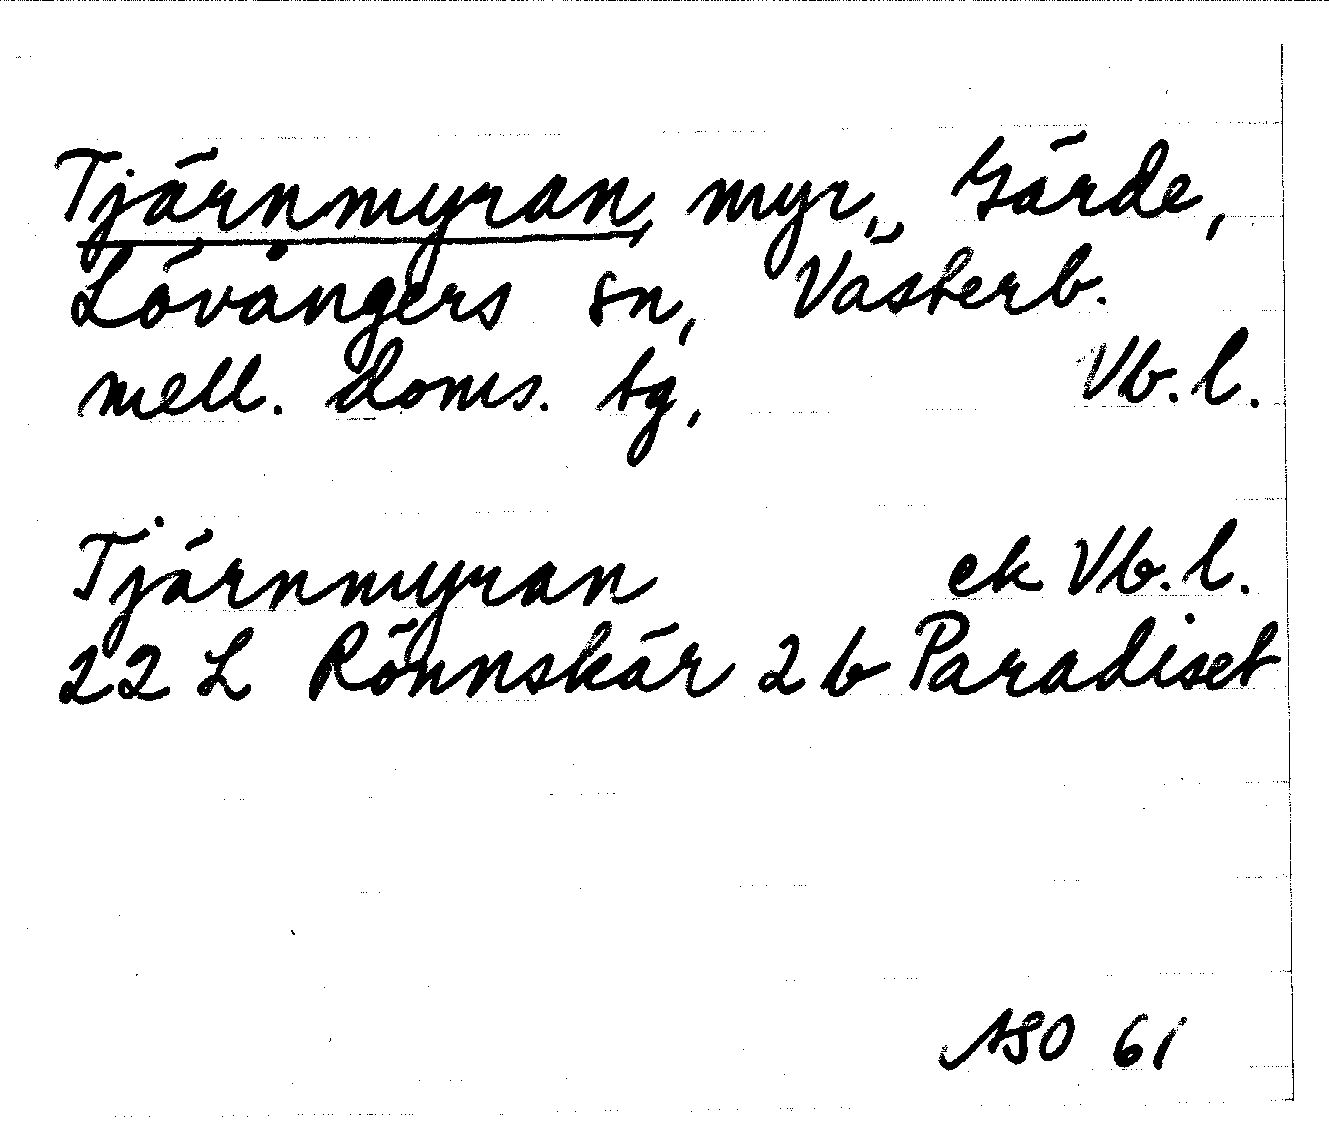 Tjärnmyran, myr, Gärde,
Lövångers sn, Västerb.
mell. doms. tg, Vb. l.
Tjärnmyran ek Vb. l.
22 L Rönnskär 2 b Paradiset
ASO 61